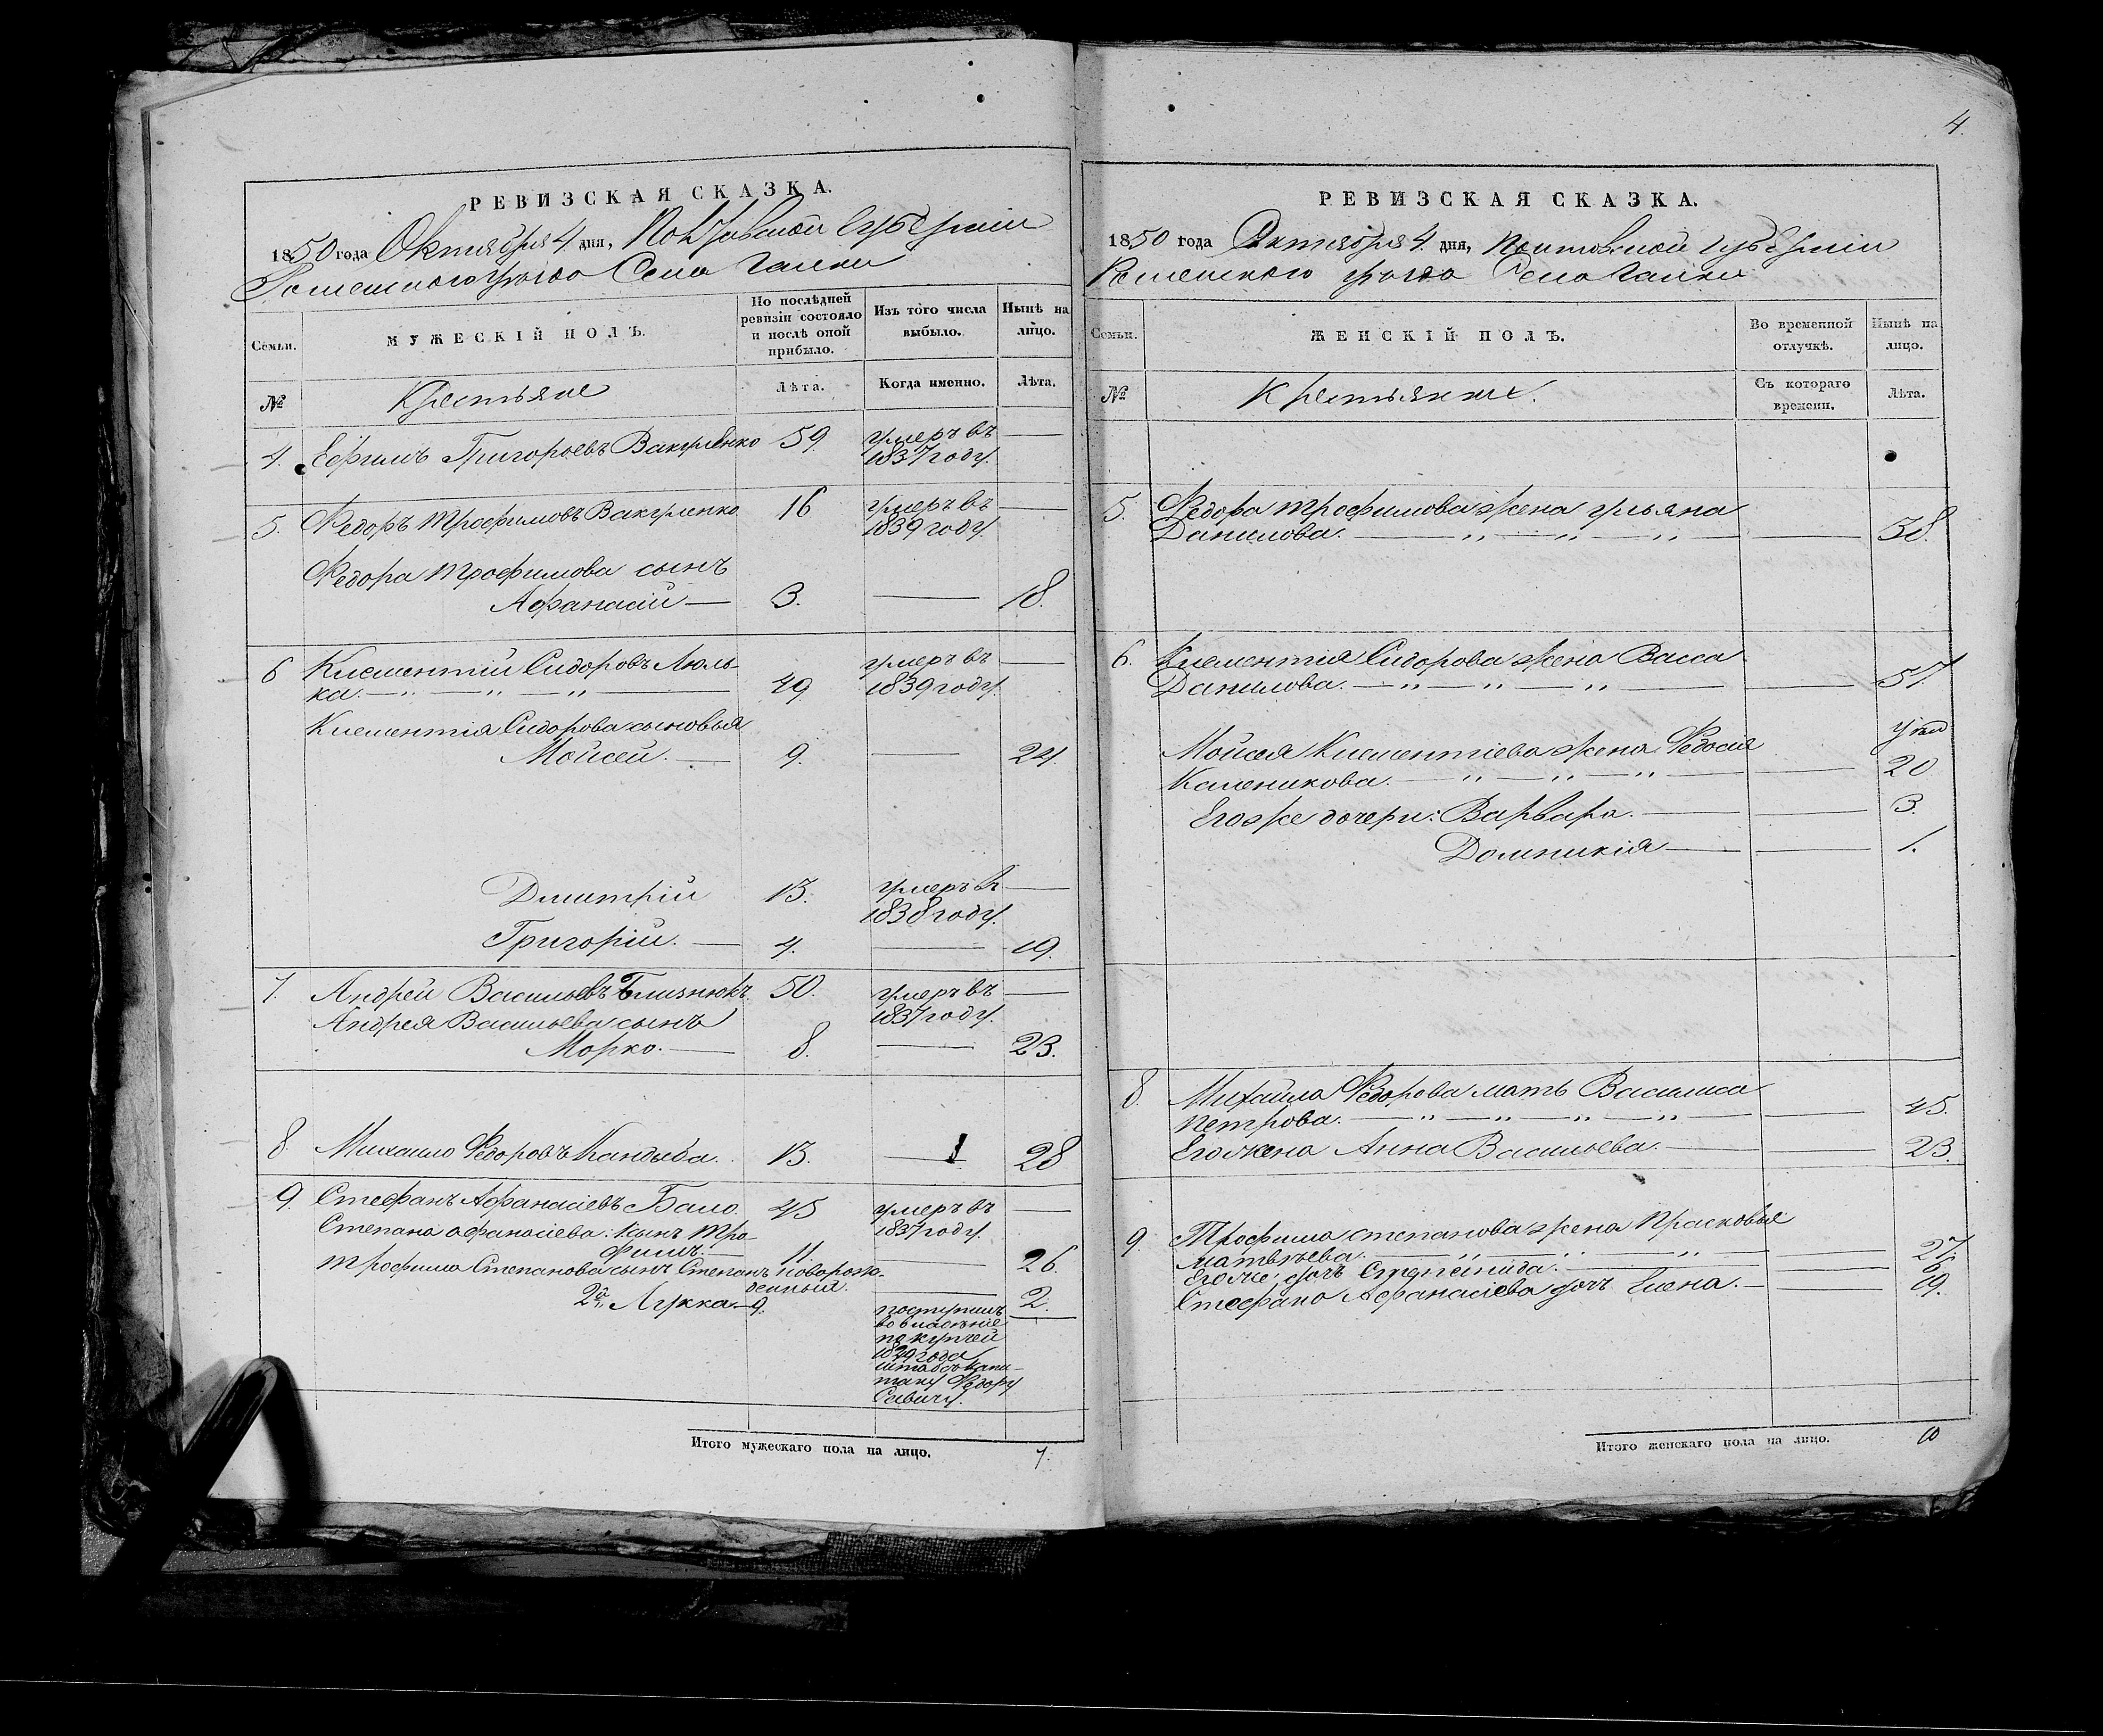 РЕВИЗСКАЯ СКАЗКА.
1850 года Октября 4 дня, Полтавской Губерніи
Роменского уезда Села Галки
Семьи.
МУЖЕСКІЙ ПОЛЪ.
По послѣдней ревизіи состояло и послѣ оной прибыло.
Изъ того числа выбыло.
Нынѣ на лицо.
№
Крестьяне
Лѣта.
Когда именно.
Лѣта.
4. Ефимъ Григорьевъ Вакуленко 59 умеръ въ —
1837 году.
5. Федоръ Трофимовъ Вакуленко 16 умеръ въ —
1839 году.
Федора Трофимова сынъ
Афанасій — 3. — 18.
6 Климентій Сидоровъ Люль-
ка. — 49 умеръ въ 1839 году. —
Климентія Сидорова сыновья
Мойсей. — 9. — 24.
Дмитрій 13. умеръ въ —
1838 году.
Григорій. — 4. — 19.
7. Андрей Васильевъ Близнюкъ 50. умеръ въ —
1837 году.
Андрея Васильева сынъ
Марко. — 8. — 23.
8. Михаило Федоровъ Кандыба. 13. — 28
9. Стефанъ Афанасіевъ Бало 45 умеръ въ —
1837 году.
Степана Афанасіева: 1 сынъ Тро-
фимъ. — 11 — 26.
Трофима Степанова сынъ Степанъ новорож-
денный. — 2.
2й Лукка — 9. поступилъ —
во владѣніе
по купчей
1849 года
штабсъ Капи-
тану Федору
Итого мужескаго пола на лицо. 7.
4.
РЕВИЗСКАЯ СКАЗКА.
1850 года Октября 4. дня, Полтавской Губерніи
Роменского уезда Села Галки
Семьи.
ЖЕНСКІЙ ПОЛЪ.
Во временной отлучкѣ.
Нынѣ на лицо.
№
Крестьянки.
Съ котораго времени.
Лѣта.
5. Федора Трофимова жена Ульяна
Данилова. — — 38.
6. Климентія Сидорова жена Васса
Данилова. — — 57.
Мойсея Климентіева жена Федосія
Каленикова. — — 20
Его же дочери: Варвара. — — 3.
Домникія — — 1.
8. Михайла Федорова мать Василиса
Петрова. — — 45.
Его жена Анна Васильева. — — 23.
9. Трофима Степанова жена Прасковья
Матвѣева. — — 27.
Его же дочь Степанида. — — 6
Стефана Афанасіева дочь Елена. — — 19.
Итого женскаго пола на лицо. 10